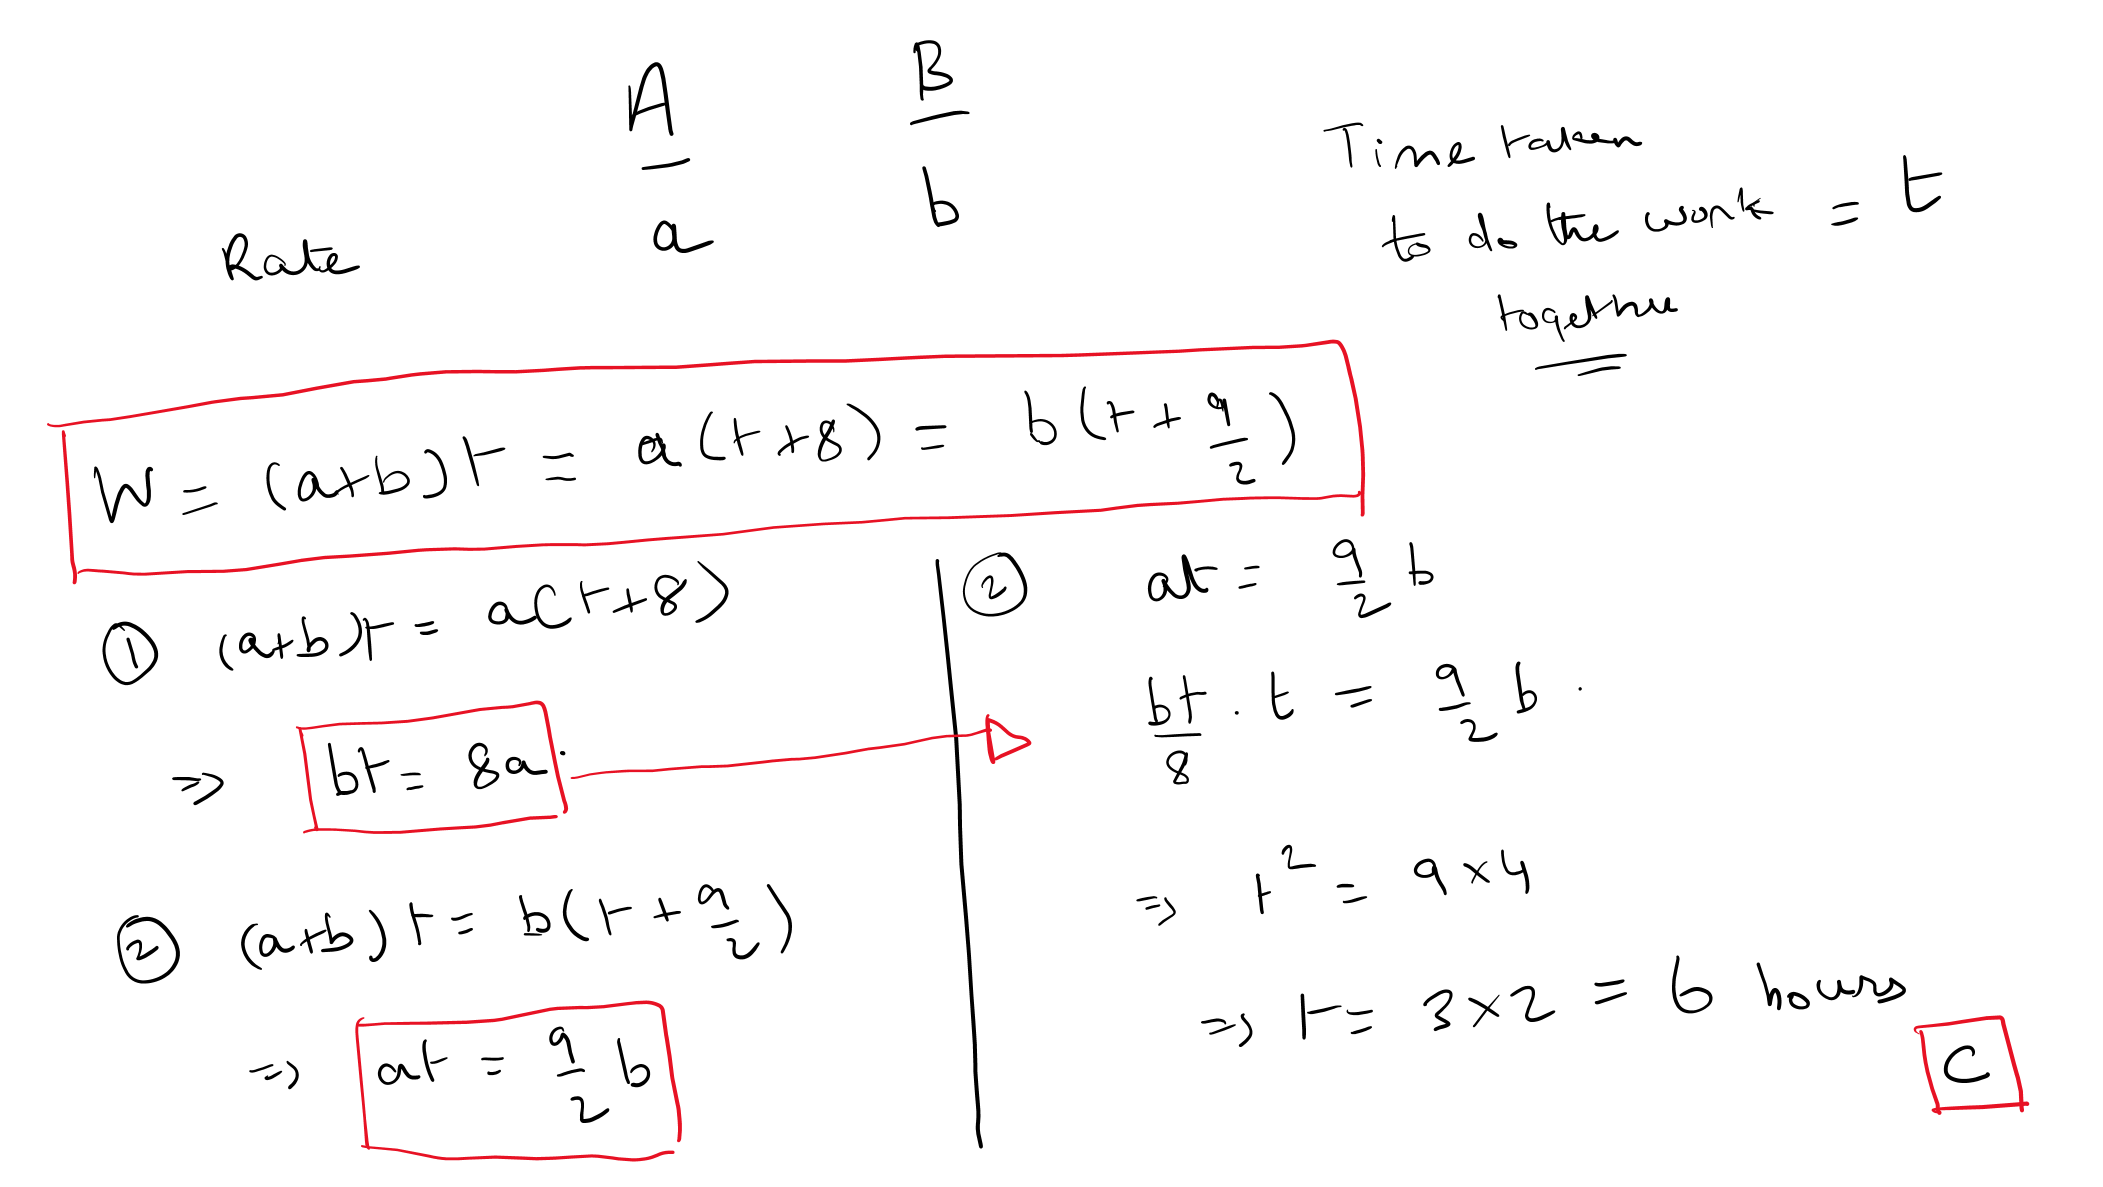 A B
Rate a b
Time taken
to do the work = t
together
W = (a+b)t = a(t+8) = b(t + 9/2)
① (a+b)t = a(t+8)
⇒ bt = 8a.
② (a+b)t = b(t + 9/2)
⇒ at = 9/2 b
② at = 9/2 b
bt/8 . t = 9/2 b .
⇒ t² = 9×4
⇒ t = 3×2 = 6 hours
C